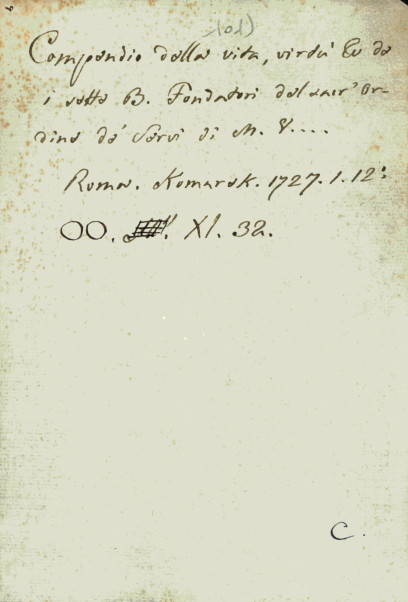 101)
Compendio della vita, virtù &c de
i sette B. Fondatori del sacr' Or-
dine de' Servi di M. V....
Roma. Komarek. 1727. 1. 12:
OO. XI. 32.
C.